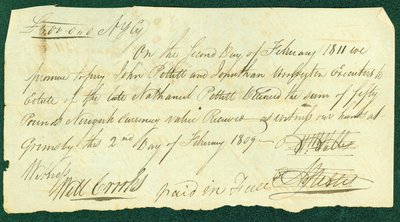 £50 0 0 NYCy
On the Second Day of February 1811 we
promise to pay John Pettitt and Jonathan Executors to
Estate of the late Nathaniel Pettitt Deceased the sum of fifty
Pounds Newyork currency value Received as witness our hands at
Grimsby this 2nd Day of February 1809
Witness
Will Crooks paid in Full